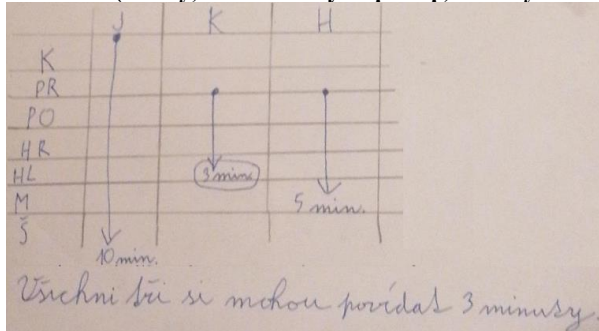 J K H
K
PR
PO
HR
HL 3 min.
M 5 min.
Š
10 min.
Všichni tři si mohou povídat 3 minuty.